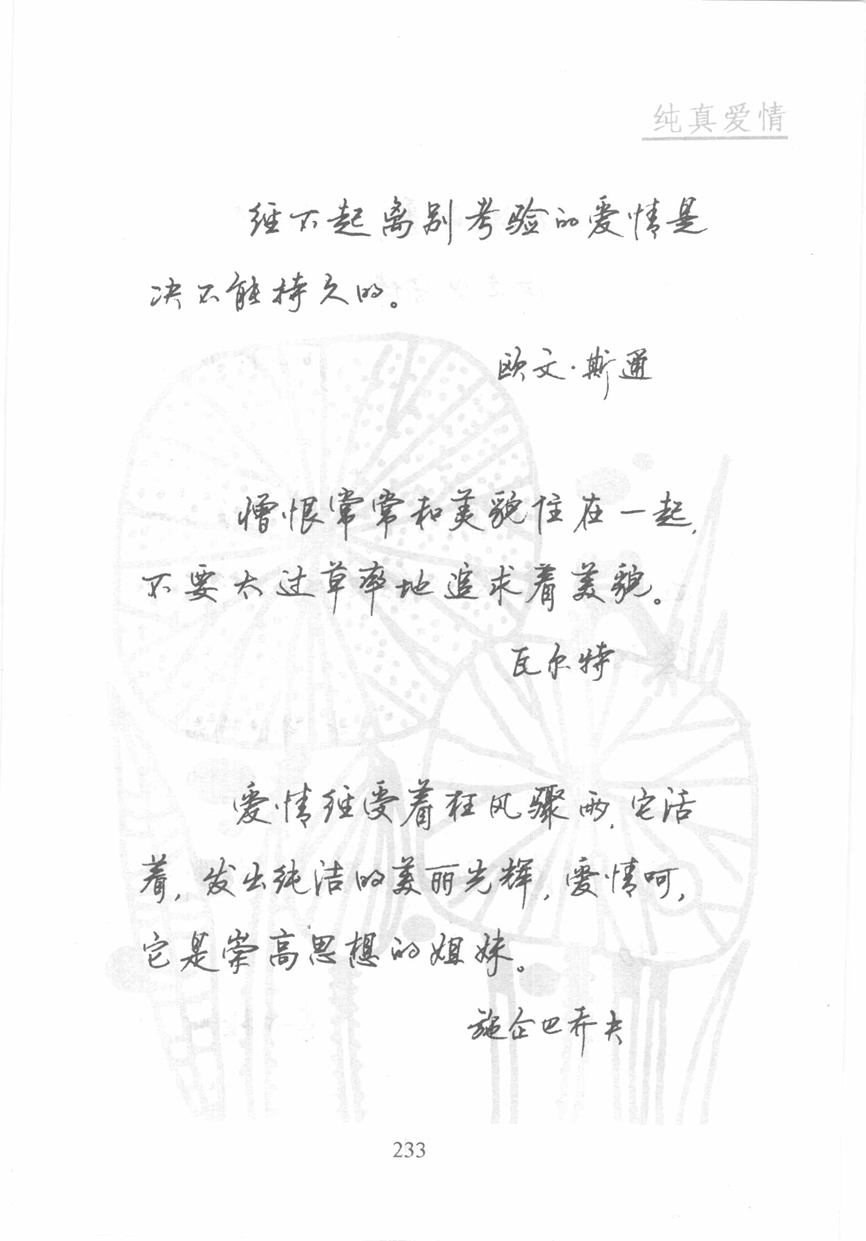 纯真爱情
经不起离别考验的爱情是
决不能持久的。
欧文·斯通
憎恨常常和美貌住在一起,
不要太过草率地追求着美貌。
瓦尔特
爱情经受着狂风骤雨,它活
着,发出纯洁的美丽光辉,爱情呵,
它是崇高思想的姐妹。
施企巴乔夫
233